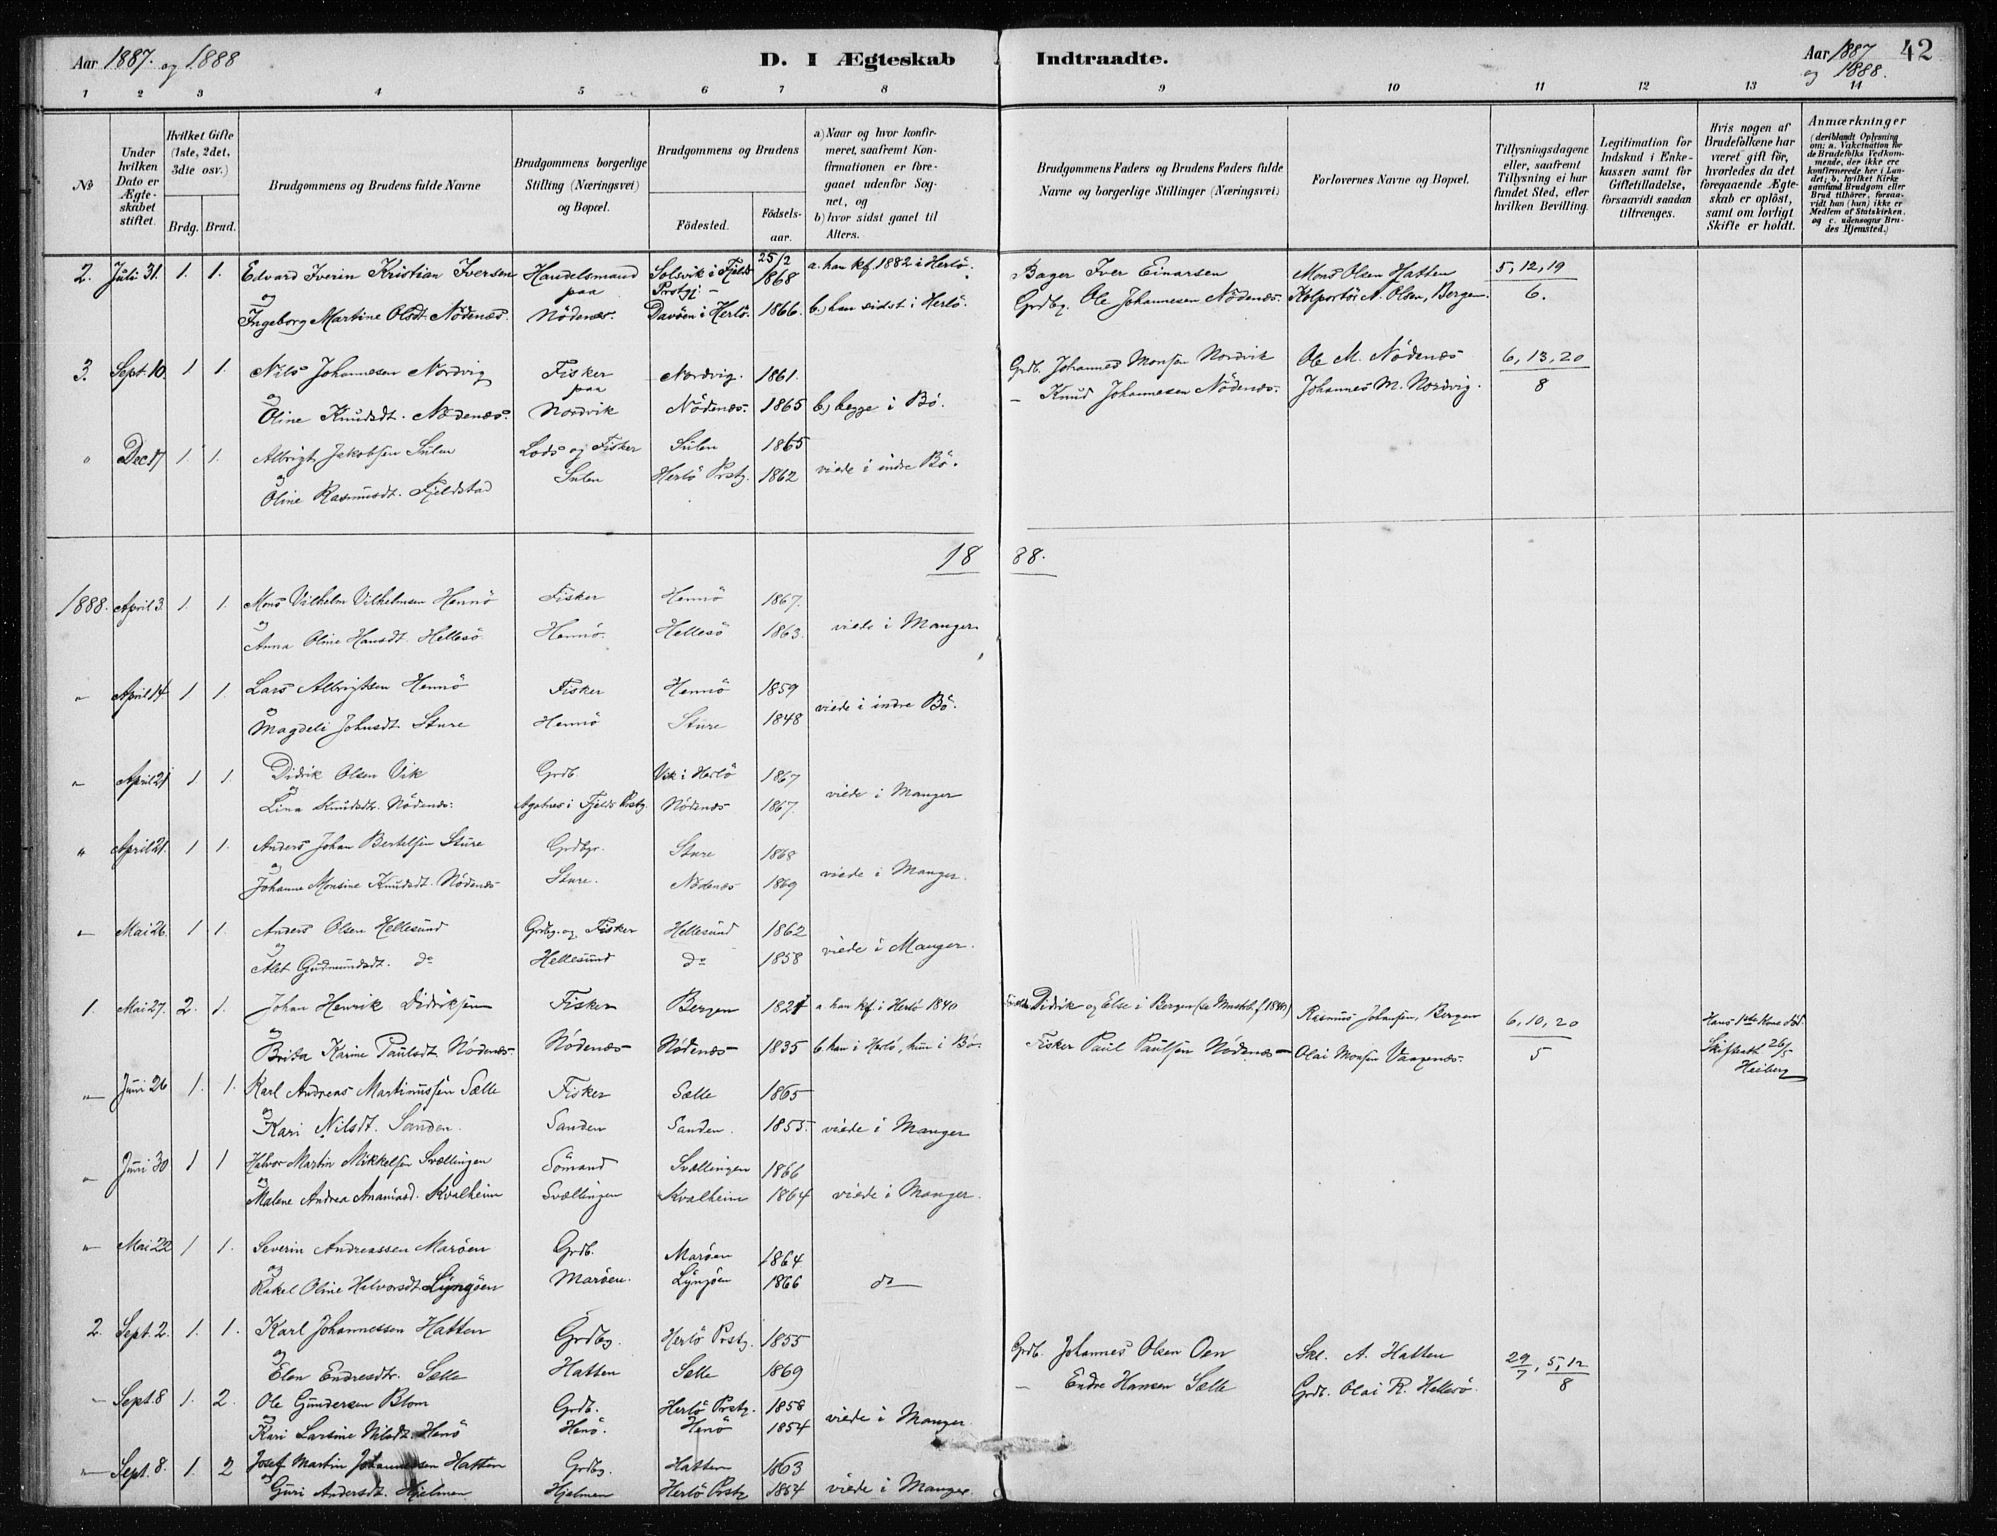 Aar 1887. og 1888
D. I Ægteskab Indtraadte.
Aar 1887 og 1888.
42
1 2 3 4 5 6 7 8 9 10 11 12 13 14
No
Under hvilken Dato er Ægteskabet stiftet.
Hvilket Gifte (1ste, 2det, 3die osv.)
Brdg. Brud.
Brudgommens og Brudens fulde Navne
Brudgommens borgerlige Stilling (Næringsvei) og Bopæl.
Brudgommens og Brudens
Fødested. Fødselsaar.
a) Naar og hvor konfirmeret, saafremt Konfirmationen er foregaaet udenfor Sognet, og
b) hvor sidst gaaet til Alters.
Brudgommens Faders og Brudens Faders fulde Navne og borgerlige Stillinger (Næringsvei)
Forlovernes Navne og Bopæl.
Tillysningsdagene eller, saafremt Tillysning ei har fundet Sted, efter hvilken Bevilling.
Legitimation for Indskud i Enkekassen samt for Giftetilladelse, forsaavidt saadan tiltrænges.
Hvis nogen af Brudefolkene har været gift før, hvorledes da det foregaaende Ægteskab er opløst, samt om lovligt Skifte er holdt.
Anmærkninger
(deriblandt Oplysning om: a. Vakcination for de Brudefolks Vedkommende, der ikke ere konfirmerede her i Landet; b. hvilket Kirkesamfund Brudgom eller Brud tilhører, forsaavidt han (hun) ikke er Medlem af Statskirken, og c. udensogns Brudes Hjemsted.)
2. Juli 31. 1. 1. Edvard Iverin Kristian Iversen Handelsmand Solsvik i Fjelds Prstgj 25/2 1868 a. han kf. 1882 i Herlö. Bager Iver Einarsen Mons Olsen Hatten 5, 12, 19
og Ingeborg Martine Olsdt. Nödenæs. paa Nödenæs. Davöen i Herlö. 1866. b.) han sidst i Herlö. Grdbg. Ole Johannesen Nödenæs. Kolportör A. Olsen, Bergen. 6.
3. Sept. 10. 1 1. Nils Johannesen Nordvig Fisker Nordvig. 1861. Grdb. Johannes Monsen Nordvik Ole M. Nödenæs 6, 13, 20
og Oline Knudsdt. Nödenæs. paa Nordvik Nödenæs. 1865 b.) begge i Bö. - Knud Johannesen Nödenæs. Johannes M. Nordvig. 8
" Dec 17 1. 1. Albrigt Jakobsen Sulen Lods og Fisker Sulen 1865
og Oline Rasmusdt. Fjeldstad Sulen Herlö Prstg. 1862 viede i indre Bö.
18 88.
1888. April 3. 1. 1. Mons Vilhelm Vilhelmsen Hennö Fisker Hennö 1867.
og Anna Oline Hansdt. Hellesö. Hennö. Hellesö 1863. viede i Manger
" April 14 1 1. Lars Albrigtsen Hennö Fisker Hennö 1859
og Magdeli Johnsdt. Sture Hennö Sture 1848 viede i indre Bö.
" April 21 1 1 Didrik Olsen Vik Grdb. Vik i Herlö 1867
og Lina Knudsdtr. Nödenæs: Agotnes i Fjelds Prstg. Nödenæs 1867. viede i Manger
" April 21. 1 1. Anders Johan Bertelsen Sture Grdbgr. Sture 1868
og Johanne Monsine Knudsdt. Nödenæs Sture. Nödenæs 1869 viede i Manger.
" Mai 26. 1 1. Anders Olsen Hellesund Grdbg. og Fisker Hellesund 1862
og Alet Gudmundsdt. do Hellesund do 1858 viede i Manger.
1. Mai 27. 2. 1. Johan Henrik Didriksen Fisker Bergen 1824 a. han kf. i Herlö 1840 Didrik og Else i Bergen Rasmus Johansen, Bergen 6, 10, 20 Hans 1ste Kone död.
og Brita Karine Paulsdt. Nödenæs. Nödenæs Nödenæs 1835 b. han i Herlö, hun i Bö. Fisker Paul Paulsen Nödenæs Olai Monsen Vaagenæs. 5 Skifteatt. 26/5 Heiberg
" Juni 26 1. 1. Karl Andreas Martinussen Sælle Fisker Sælle 1865
og Kari Nilsdt. Sanden. Sanden Sanden. 1855. viede i Manger
" Juni 30 1 1 Halvor Martin Mikkelsen Svællingen Sömand Svællingen 1866
og Malene Andrea Ananiasd. Kvalheim Svællingen Kvalheim 1864 viede i Manger.
" Mai 22 1 1. Severin Andreassen Maröen Grdb. Maröen 1864
og Rakel Oline Halvorsdt. Lyngöen Maröen. Lyngöen 1866 do
2. Sept. 2. 1. 1. Karl Johannessen Hatten Grdbg. Herlö Prstg. 1855 Grdb. Johannes Olsen Oen Skl. A. Hatten 29/7, 5, 12
og Elen Endresdtr. Sælle Hatten Sælle 1869 - Endre Hansen Sælle Grdb. Olai R. Hellesö. 8
" Sept. 8 1. 2. Ole Gundersen Blom Grdb. Herlö Prstg. 1858
og Kari Larsine Nilsdt. Henö Henö. Henö 1854 viede i Manger
" Sept. 8. 1. 2 Josef Martin Johannessen Hatten Grdbg. Hatten 1863
og Guri Andersdt. Hjelmen Hjelmen Herlö Prstg 1854 viede i Manger.